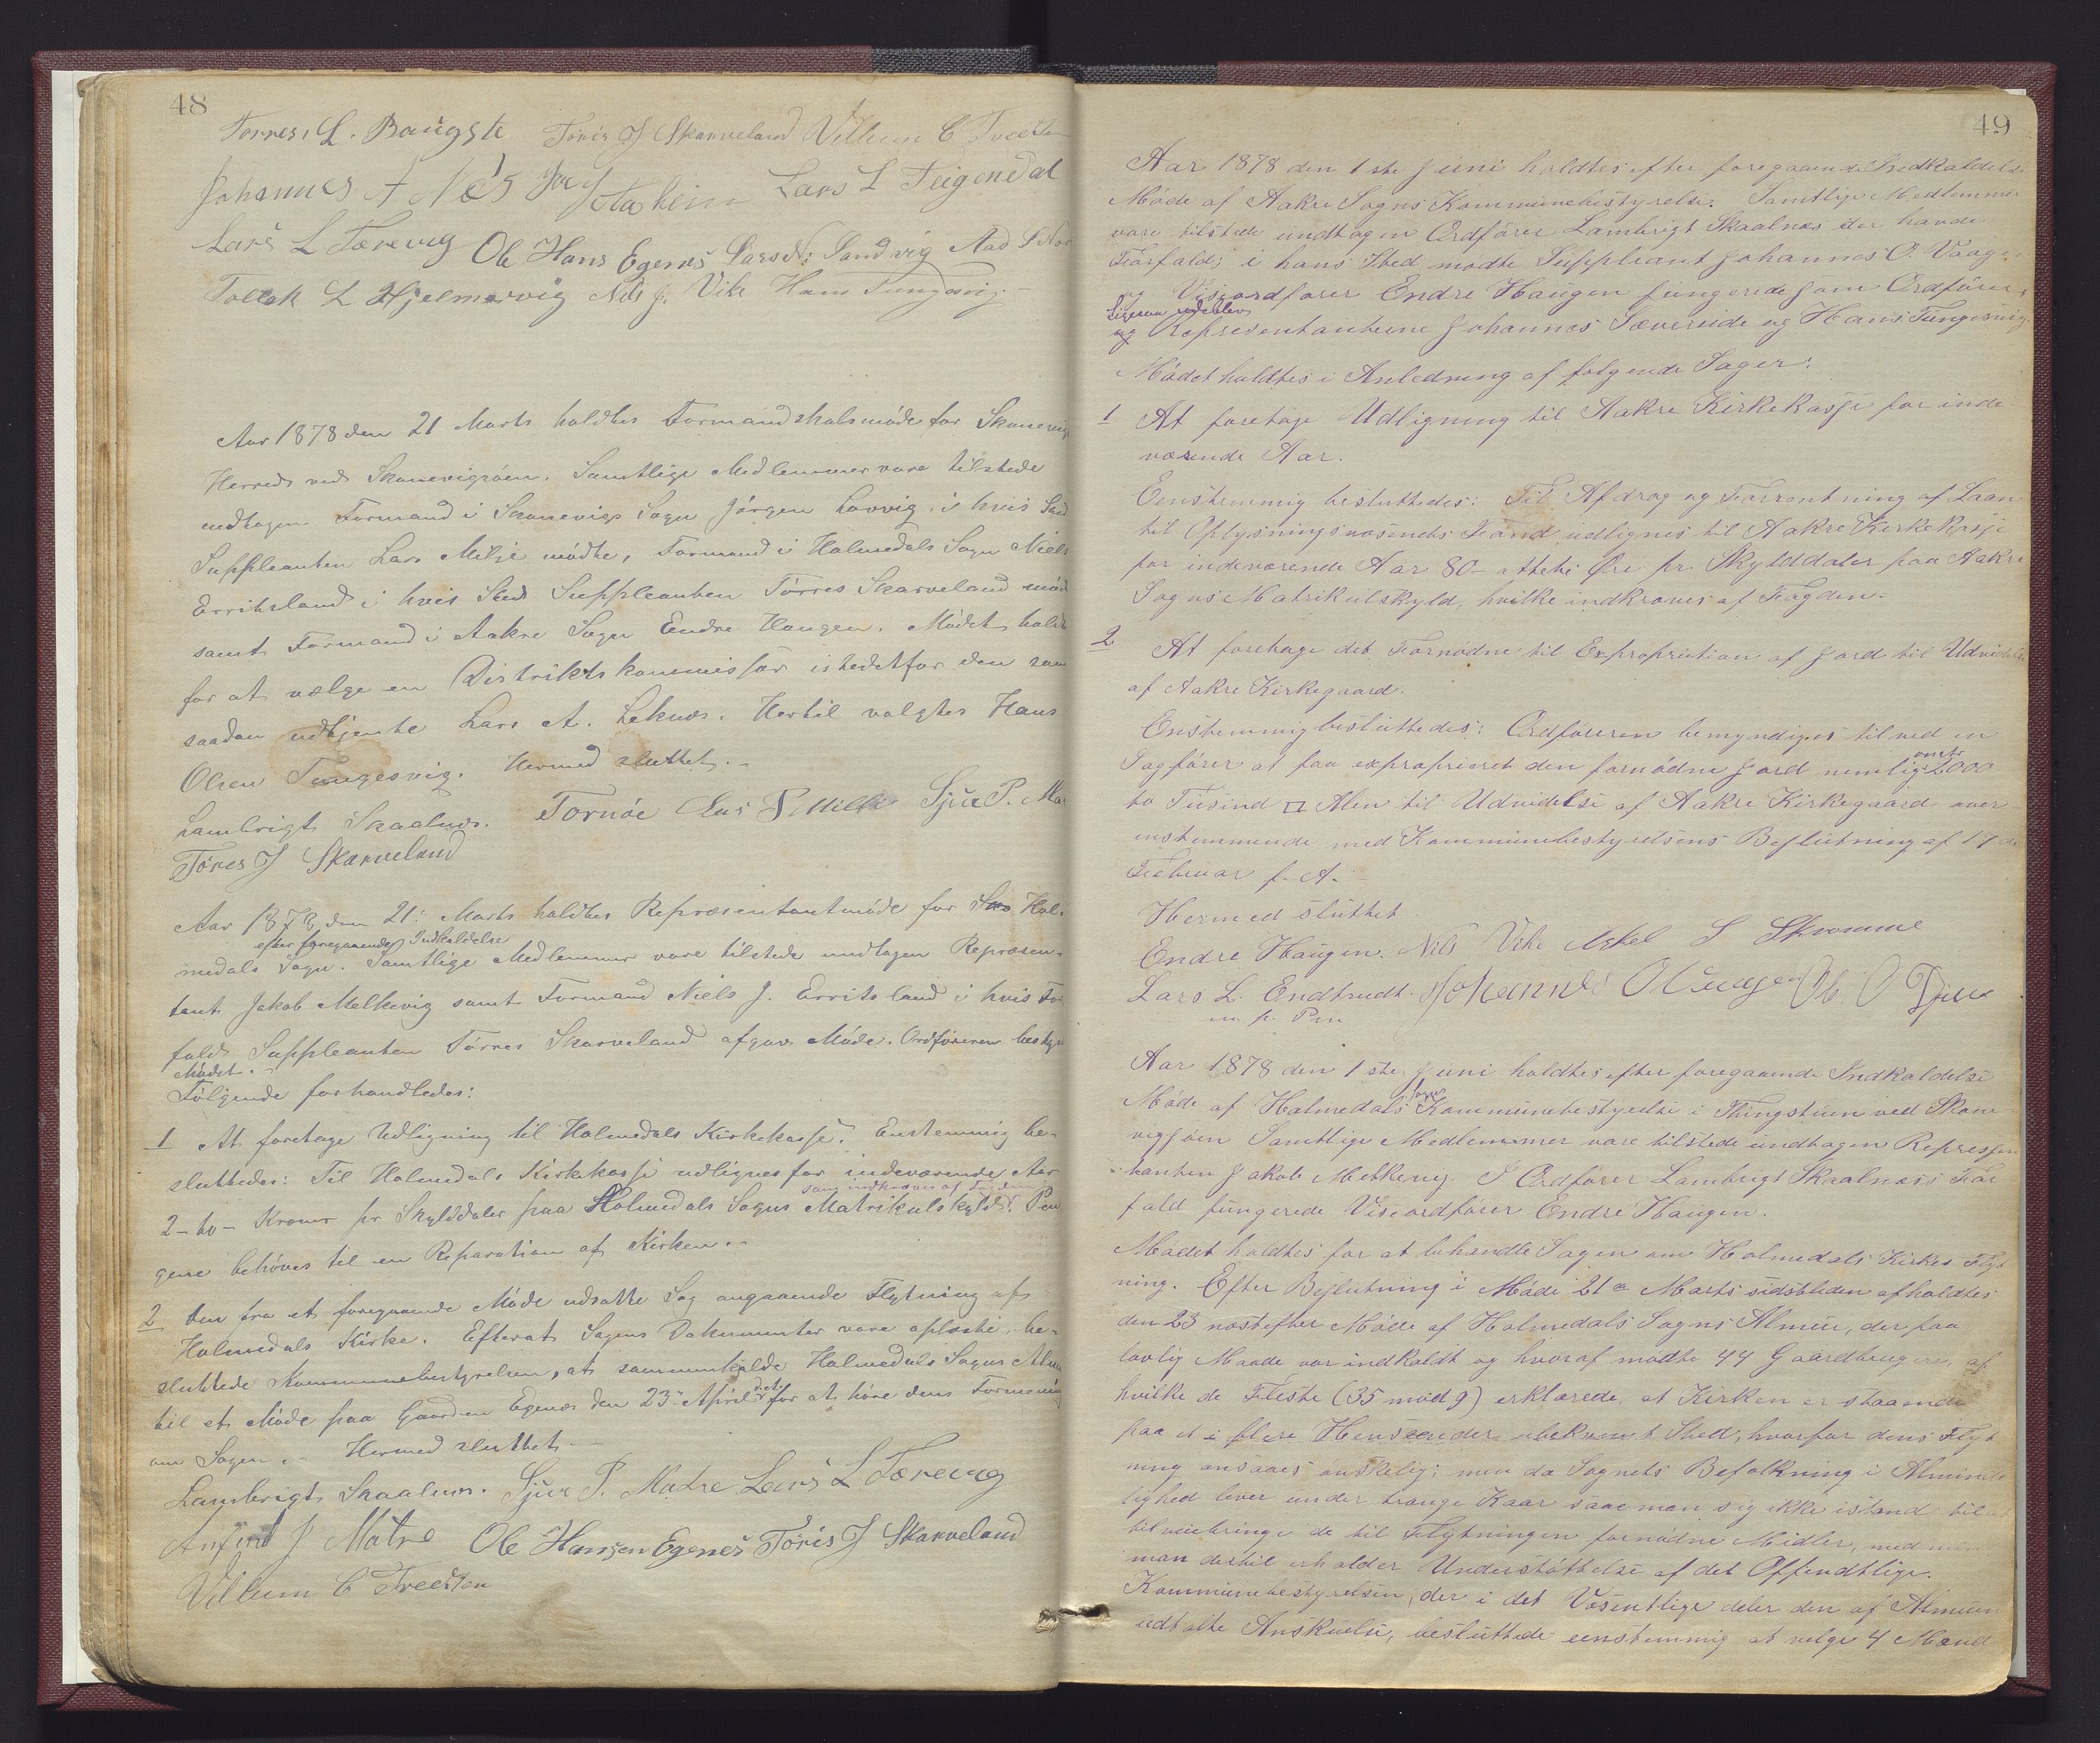 48
Torres, L. Baugstø Tøris J Skarveland Villum C Tveeten
Johannes A Næs Lars L Teigendal
Lars L Færevug Ole Hans Egenes Lars N: Sandvig Aad
Tollak L Hjelmervig Nils J. Vike Hans Tungesvig
Aar 1878 den 21 Marts holdtes Formandskabsmøde for Skonevigs
Herred ved Skonevigsøen. Samtlige Medlemmer vare tilstede
undtagen Formand i Skonevigs Sogn Jørgen Lovvig i hvis Sted
Suppleanten Lars Milje mødte, Formand i Holmedals Sogn Niels
Erritsland i hvis Sted Suppleanten Tørres Skarveland mød
samt Formand i Aakre Sogn Endre Haugen. Mødet holdt
for at vælge en Distriktskommissær istedetfor den som
saadan udtjente Lars A. Leknes. Hertil valgtes Hans
Olsen Tungesvig. Hermed sluttet.-
Lambrigt Skaalnes. Tornøe Lars S Milje Sjur P. Ma
Tøres J Skarveland
Aar 1878 den 21: Marts holdtes Repræsentantmøde for Hol-
efter foregaaende Indkaldelse
medals Sogn. Samtlige Medlemmer vare tilstede undtagen Repræsen-
tant Jakob Melkevig samt Formand Niels J. Erritsland i hvis For
fald Suppleanten Tørres Skarveland afgav Møde. Ordføreren besty
Mødet.-
Følgende forhandledes:
1 At foretage Udligning til Holmedals Kirkekasse. Enstemmig be-
sluttedes: Til Holmedals Kirkekasse udlignes for indeværende Aar
som indkræves af Fogden
2-to- Kroner pr Skylddaler paa Holmedals Sogns Matrikulskyld. Pen
gene behøves til en Reparation af Kirken.-
2 Den fra et foregaaende Møde udsatte Sag angaaende Flytning af
Holmedals Kirke. Efterat Sagens Dokumenter vare oplæste, be-
sluttede Kommunebestyrelsen, at sammenkalde Holmedals Sogns Almu
til et Møde paa Gaarden Egenes den 23de April for at høre dens Formening
om Sagen.- Hermed sluttet.-
Lambrigt Skaalnes. Sjur P. Matre Lars L Færevug
Anfind J Matre Ole Hansen Egenes Tøris J Skarveland
Villum C Tveeten
49
Aar 1878 den 1ste Juni holdtes efter foregaaende Indkaldelse
Møde af Aakre Sogns Kommunebestyrelse. Samtlige Medlemmer
vare tilstede undtagen Ordfører Lambrigt Skaalnes der havde
Forfald; i hans Sted mødte Suppleant Johannes O. Vaage
og Viseordfører Endre Haugen fungerede som Ordfører,
ligesom udeblev
og Representanterne Johannes Sævereide og Hans Tungesvig.
Mødet holdtes i Anledning af følgende Sager:
1 At foretage Udligning til Aakre Kirkekasse for inde
værende Aar.
Eenstemmig besluttedes: Til Afdrag og Forrentning af Laan
til Oplysningsvæsenets Fond udlignes til Aakre Kirkekasse
for indeværende Aar 80- otteti Øre pr. Skylddaler paa Aakre
Sogns Matrikulskyld, hvilke indkræves af Fogden.
2 At foretage det Fornødne til Expropriation af Jord til Udvidelse
af Aakre Kirkegaard.
Enstemmig besluttedes: Ordføreren bemyndiges til ved en
Sagfører at faa exproprieret den fornødne Jord nemlig omtr 2000
to Tusind □ Alen til Udvidelse af Aakre Kirkegaard over-
enstemmende med Kommunebestyrelsens Beslutning af 17de
Februar f. A.-
Hermed sluttet
Endre Haugen. Nils Vike Askel S Skromme
Lars L. Endtrudt. Johannes O Vaage Ole O
m. p. Pen
Aar 1878 den 1ste Juni holdtes efter foregaaende Indkaldelse
Møde af Holmedals Sogns Kommunebestyrelse i Thingstuen ved Skone-
vigsøen Samtlige Medlemmer vare tilstede undtagen Represen
tanten Jakob Melkevig. I Ordfører Lambrigt Skaalnes's For
fald fungerede Viseordfører Endre Haugen.
Mødet holdtes for at behandle Sagen om Holmedals Kirkes Flyt
ning. Efter Beslutning i Møde 21de Marts sidstleden afholdtes
den 23 næstefter Møde af Holmedals Sogns Almue, der paa
lovlig Maade var indkaldt og hvoraf mødte 44 Gaardbrugere, af
hvilke de Fleste (35 mod 9) erklærede, at Kirken er staaende
paa et i flere Henseender ubekvemt Sted, hvorfor dens Flyt
ning ansaaes ønskelig; men da Sognets Befolkning i Alminde
lighed lever under trange Kaar saae man sig ikke istand til at
tilveiebringe de til Flytningen fornødne Midler, med min
man dertil erholder Understøttelse af det Offendtlige.
Kommunebestyrelsen, der i det Væsentlige deler den af Almuen
udtalte Anskuelse, besluttede eenstemmig at velge 4 Mænd